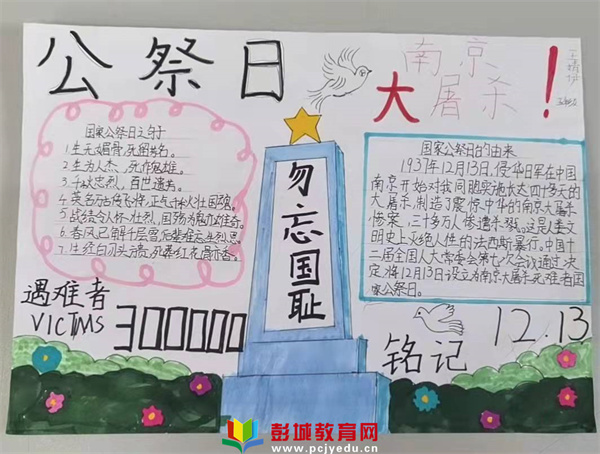 公祭日
南京
大屠杀！
国家公祭日之句子
1.生无媚骨,死留英名。
2.生为人杰,死作鬼雄。
3.千秋忠烈,百世遗芳。
4.英名万古传飞将,正气千秋壮国魂。
5.战绩令人怀壮烈,国殇为鬼亦雄奇。
6.春风已解千层雪,后辈难忘先烈恩。
7.生经白刃头方贵,死葬红花骨亦香。
勿忘国耻
国家公祭日的由来
1937年12月13日,侵华日军在中国
南京开始对我同胞实施长达四十多天的
大屠杀,制造了震惊中华的南京大屠杀
惨案,三十多万人惨遭杀戮。这是人类文
明史上灭绝人性的法西斯暴行。中国十
二届全国人大常委会第七次会议通过决
定,将12月13日设立为南京大屠杀死难者国
家公祭日。
遇难者
VICTMS 300000
铭记
12.13
彭城教育网
www.pcjyedu.cn